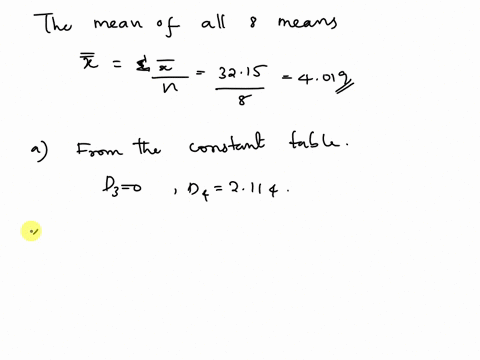 The mean of all 8 means
x̿ = Σ x̄ / n = 32.15 / 8 = 4.019
a) From the constant table.
D₃=0 , D₄ = 2.114.